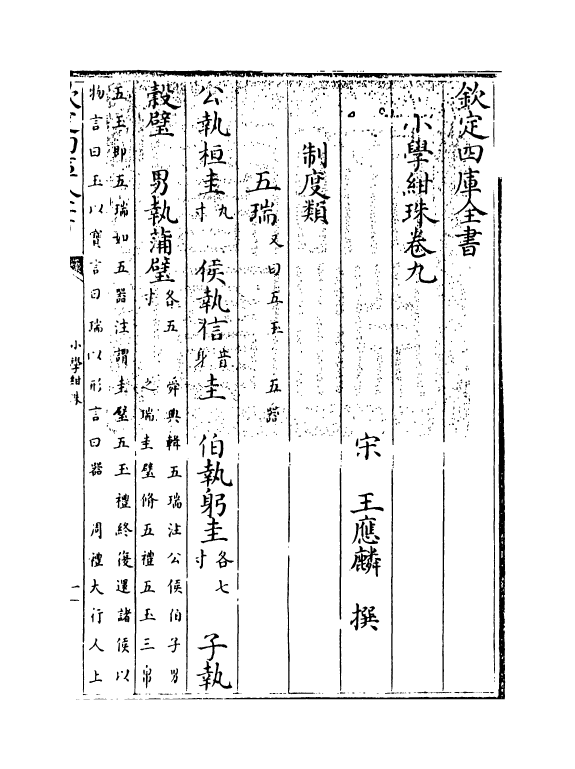 欽定四庫全書
小學紺珠卷九
宋 王應麟 撰
制度類
五瑞又曰五玉 五器
公執桓圭九寸 侯執信音身圭 伯執躬圭各七寸 子執
穀璧 男執蒲璧各五寸 舜典輯五瑞注公侯伯子男之瑞圭璧脩五禮五玉三帛
五玉即五瑞如五器注謂圭璧五玉禮終後還諸侯以
物言曰玉以寶言曰瑞以形言曰器 周禮大行人上
小學紺珠
一